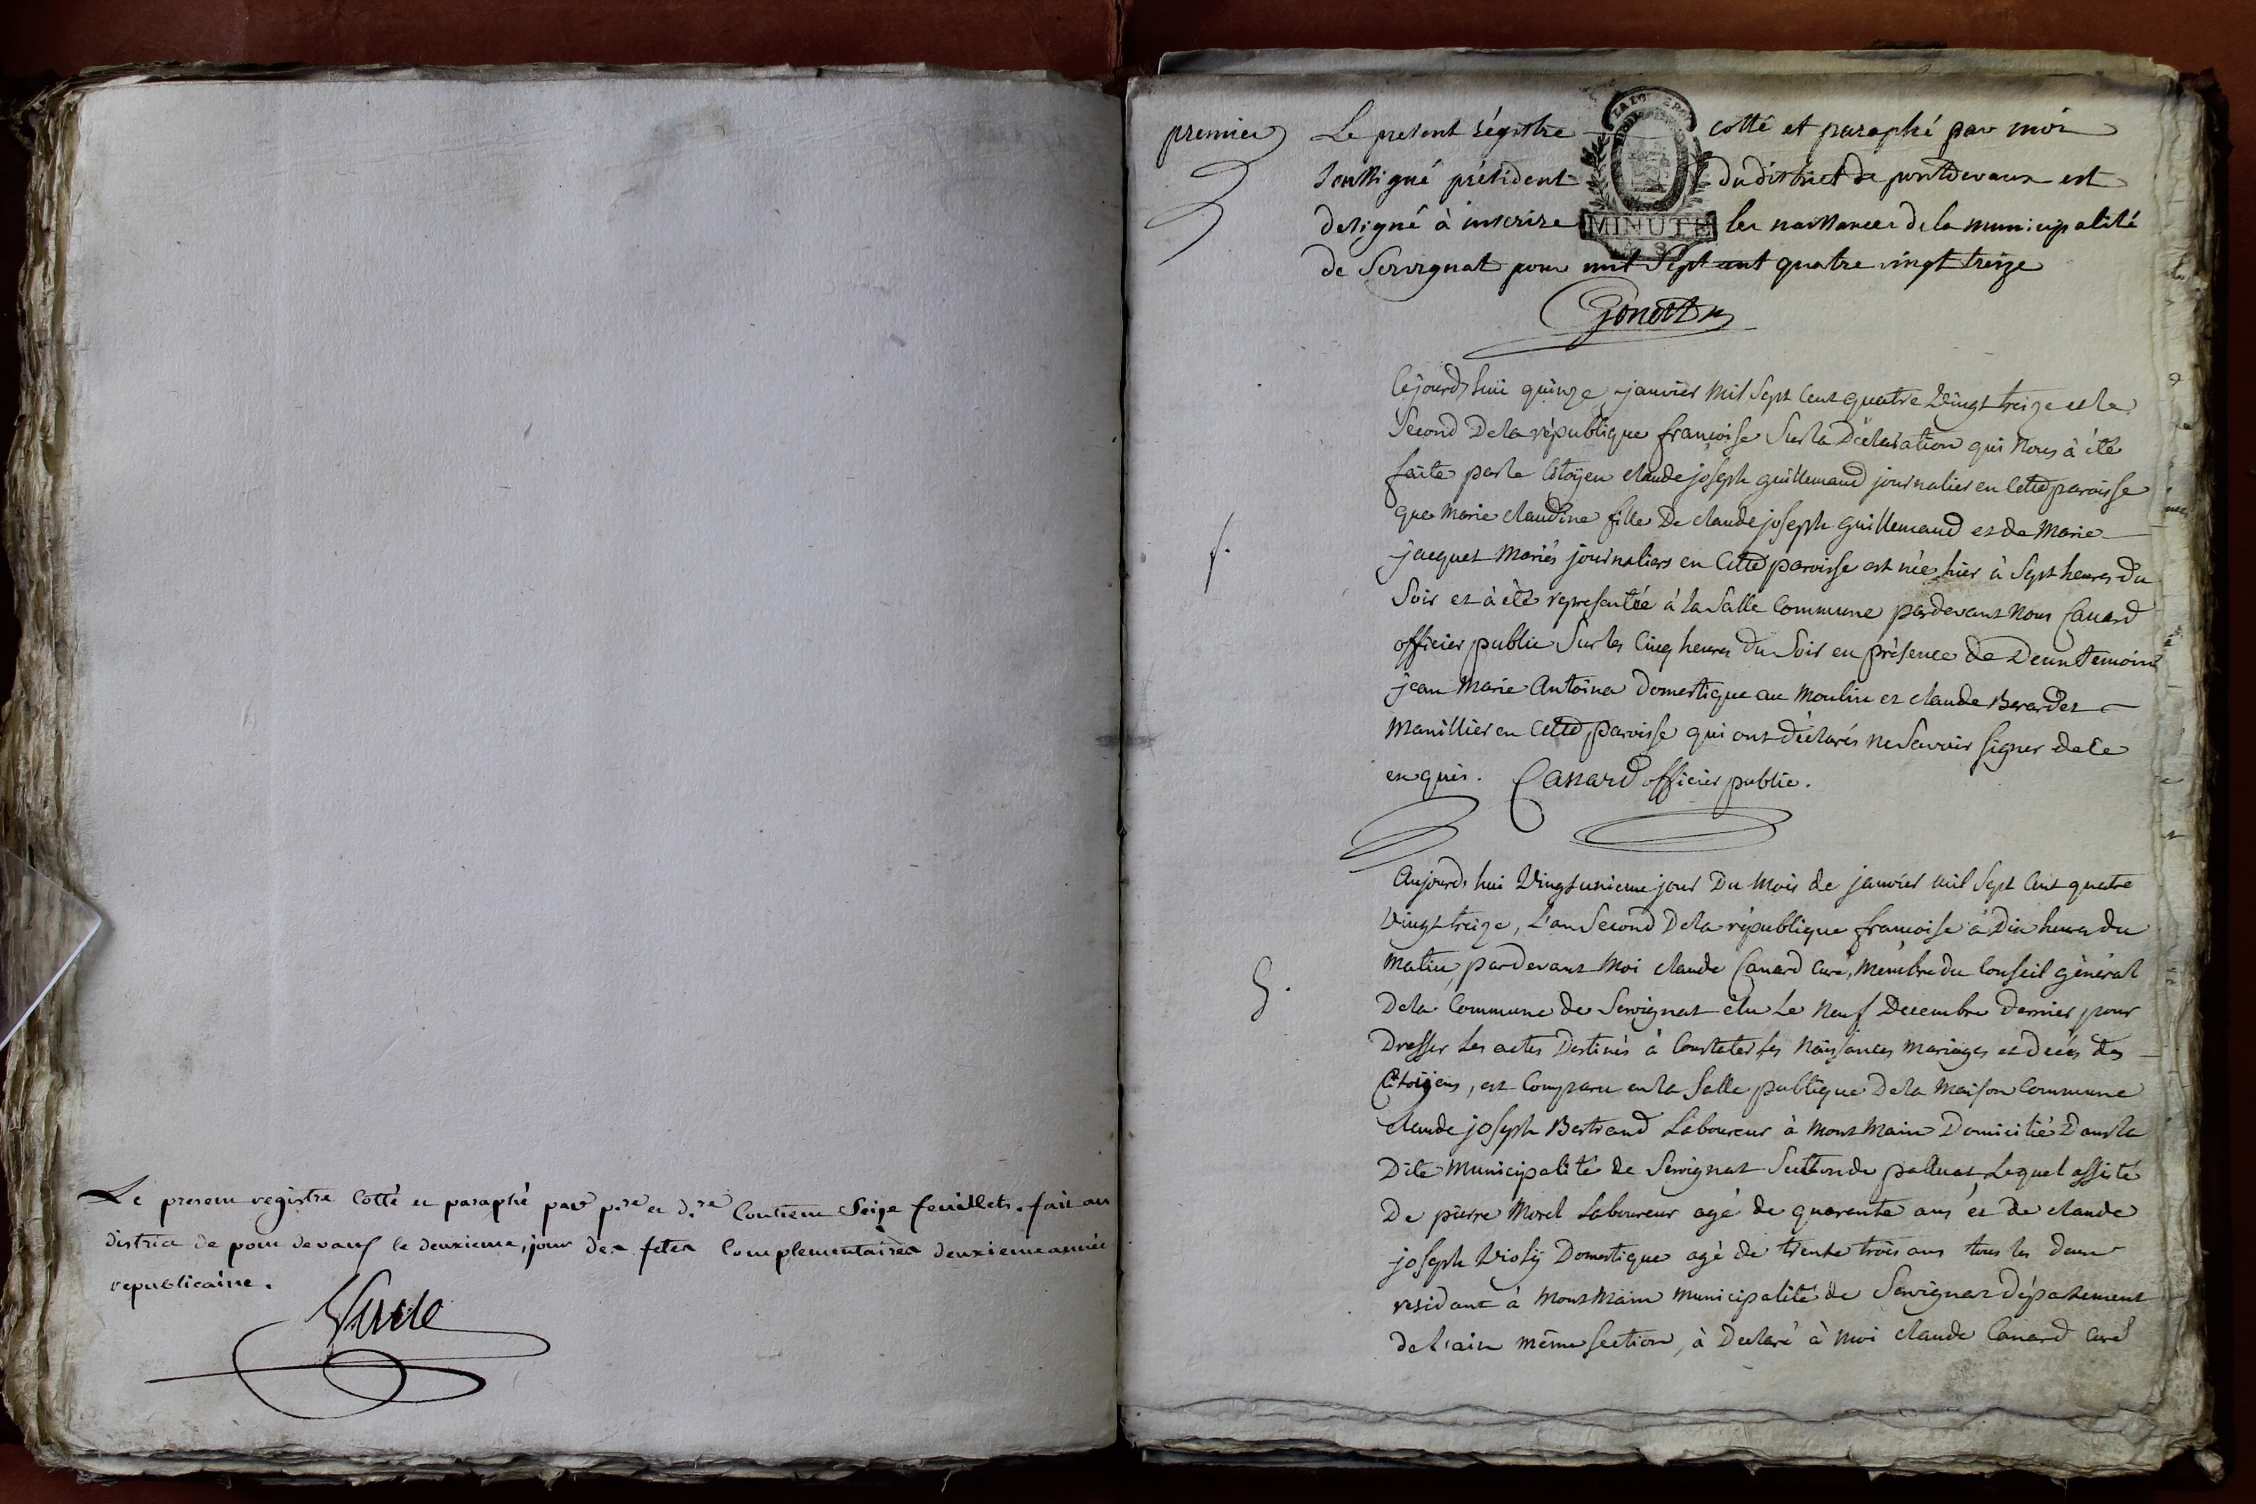 Le present registre cotté et paraphé par p.re et d.re Contient Seize feuillets. fait au
district de pont de vaux le deuxieme, jour des fetes Complementaires deuxieme année
republicaine.
premier
Le present régistre cotté et paraphé par moi
soussigné président du district de pontdevaux est
designé à inscrire les naissances de la municipalité
MINUTE
de Servignat pour mil sept cent quatre vingt treize
Cejourd'hui quinze janvier mil Sept Cent quatre Vingt treize et le
Second De la république françoise Sur la Déclaration qui Nous à été
faite par le Citoÿen claude joseph guillemaud journalier en Cette paroisse
que Marie claudine fille De claude joseph guillemaud et de Marie
jacquet Mariés journaliers en Cette paroisse est née hier à Sept heures du
Soir et à été representée à la Salle Commune pardevant Nous Canard
officier public Sur les Cinq heures du Soir en présence de Deux temoins
jean Marie Antoina Domestique au Moulin et claude Berardet
Manillier en Cette paroisse qui ont déclarés ne Savoir signer de Ce
enquis. Canard officier public.
f.
Aujourd'hui Vingt unieme jour Du Mois de janvier mil Sept Cent quatre
Vingt treize, L'an Second De la république françoise à Dix heures du
Matin, pardevant Moi claude Canard Curé, Membre du Conseil général
De la Commune de Servignat élu Le Neuf Decembre Dernier pour
Dresser Les actes Destinés à Constater les Naissances Mariages et décés des
Citoÿens, est Comparu en la Salle publique De la Maison Commune
claude joseph Bertrand Laboureur à Mont Main Domicilié Dans la
Dite Municipalité de Servignat Section de palluat Lequel assisté
De pierre Morel Laboureur agé de quarente ans et de claude
joseph Domestique agé de trente trois ans tous les deux
residant à Mont Main Municipalité de Servignat Département
de l'ain même Section, à Declaré à Moi claude Canard Curé